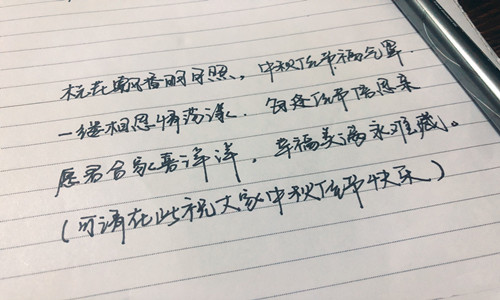 桂花飘香明月照，中秋佳节福气罩.
一缕相思情荡漾. 每逢佳节倍思亲
愿君合家喜洋洋，幸福美满永难藏。
(可清在此祝大家中秋佳节快乐)